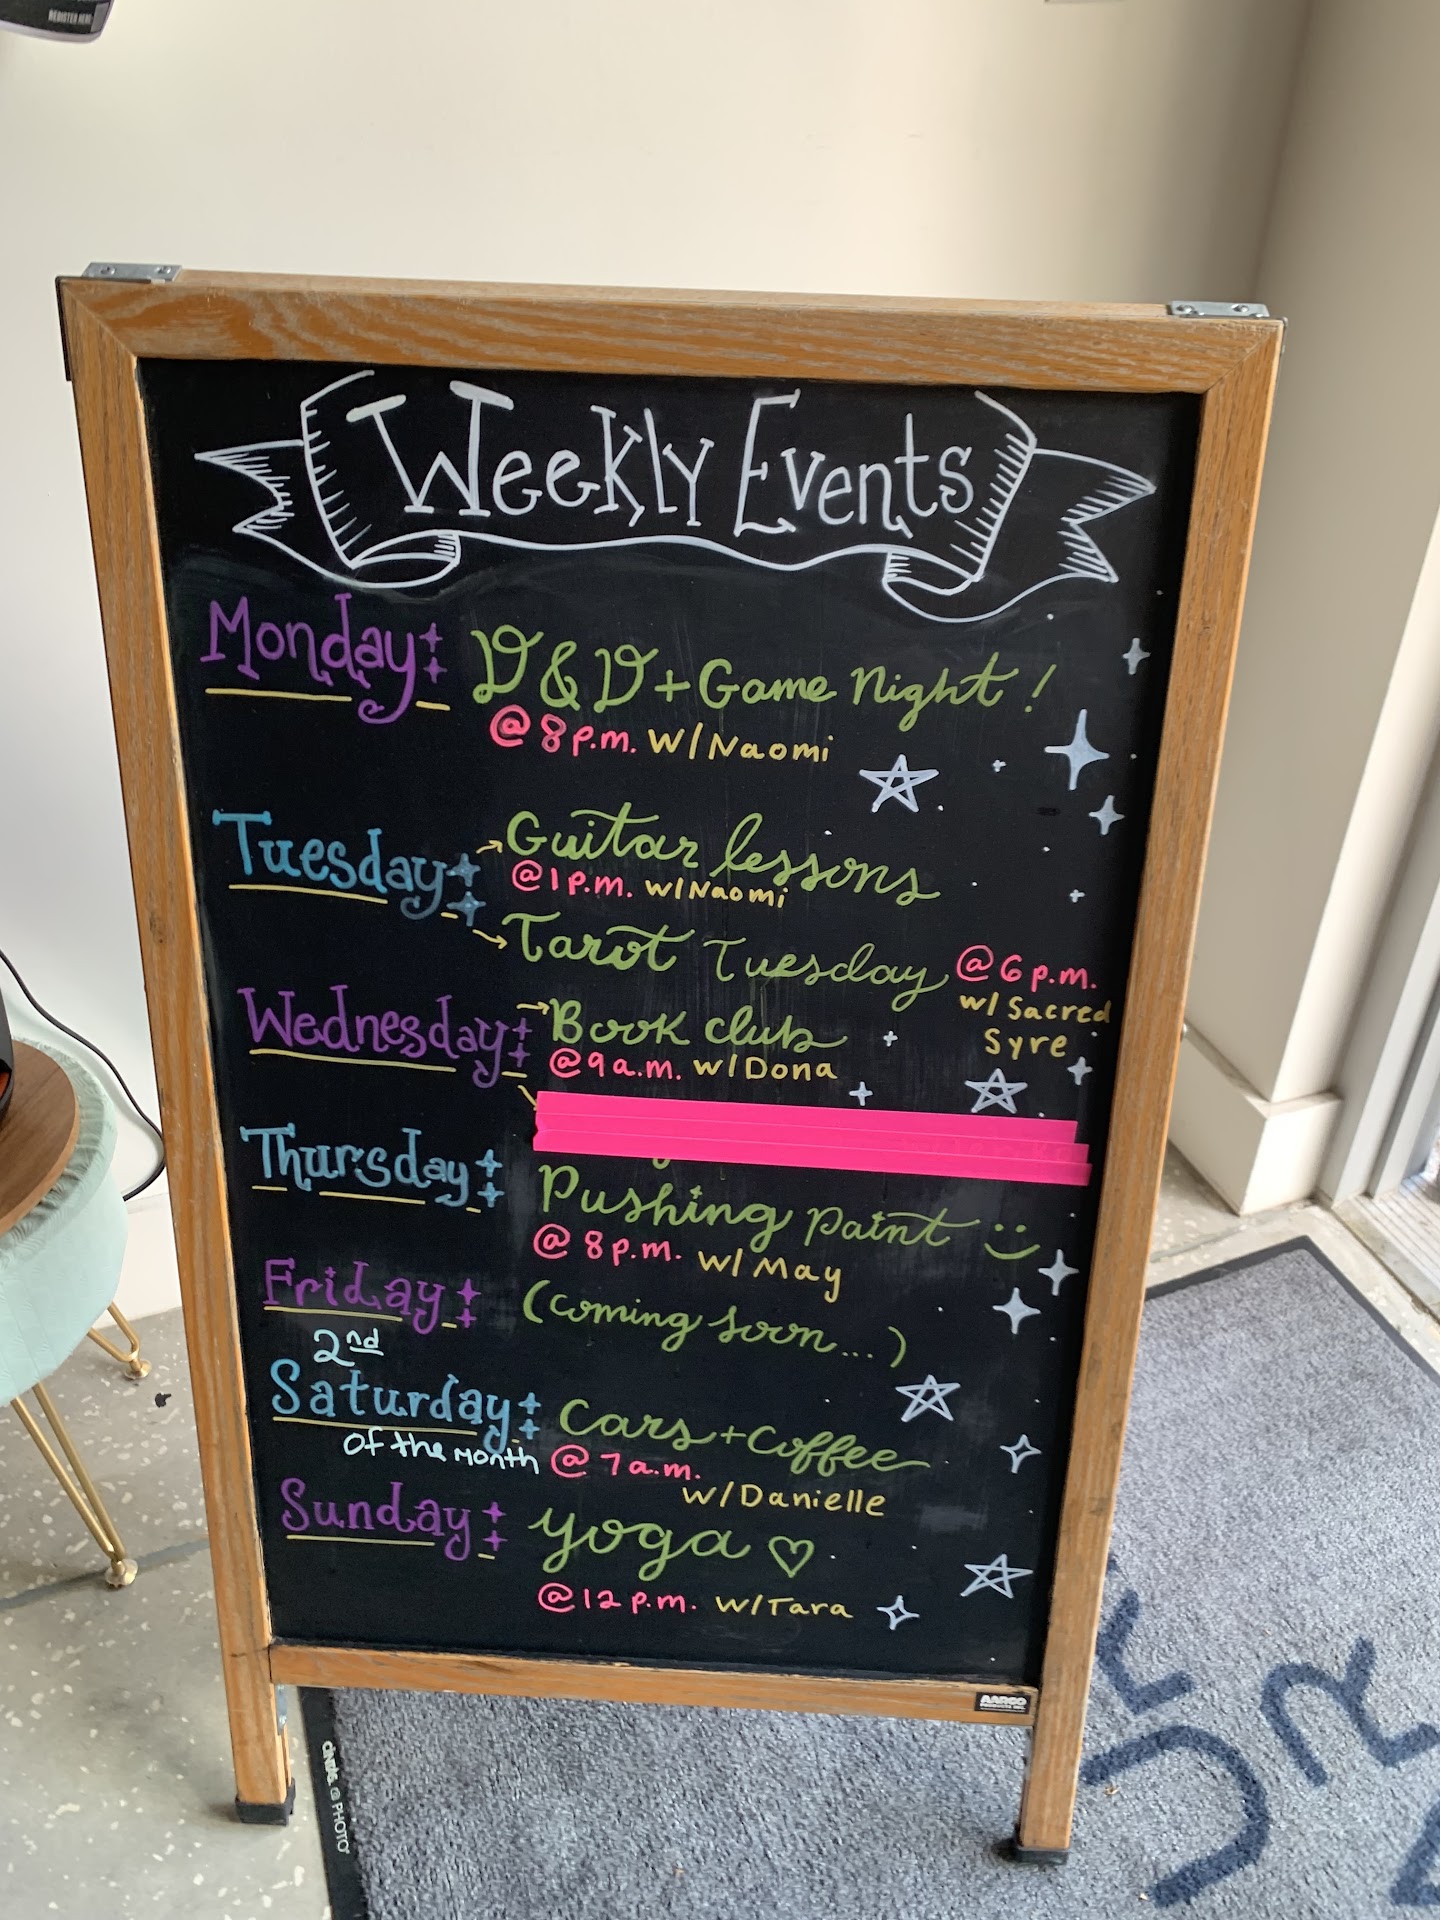 REGISTER HERE
Weekly Events
Monday: D&D + Game Night!
@ 8 p.m. w/Naomi
Tuesday: → Guitar lessons
@ 1 p.m. w/Naomi
→ Tarot Tuesday @ 6 p.m.
w/Sacred
Syre
Wednesday: → Book club
@ 9 a.m. w/Dona
Thursday: Pushing paint
@ 8 p.m. w/May
Friday: (coming soon...)
2nd
Saturday: Cars + Coffee
of the Month @ 7 a.m.
w/Danielle
Sunday: yoga ♡
@ 12 p.m. w/Tara
AARCO
cintas. @ PHOTO